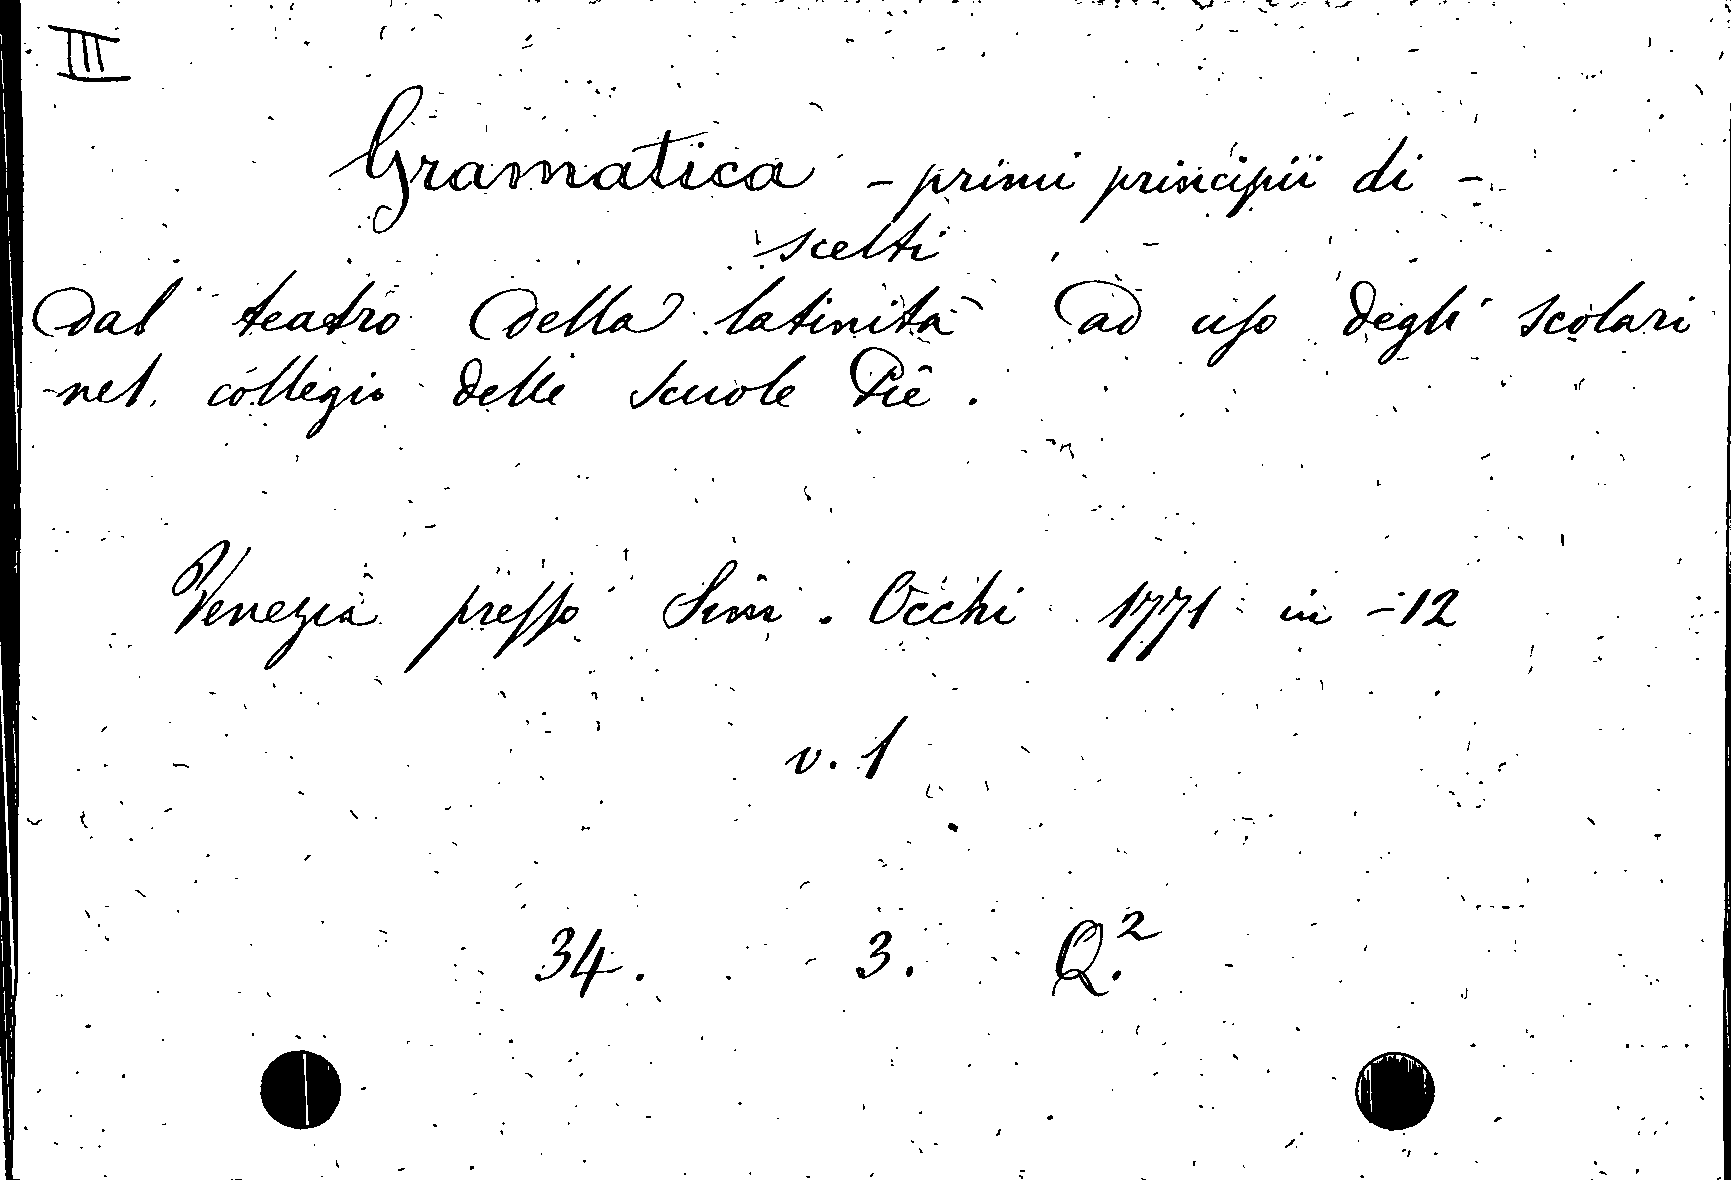 III
Gramatica - primi principii di -
scelti
dal teatro della latinità ad uso degli scolari
nel collegio delle scuole Pie.
Venezia presso Sim. Occhi 1771 in -12
v. 1
34. 3. Q.²